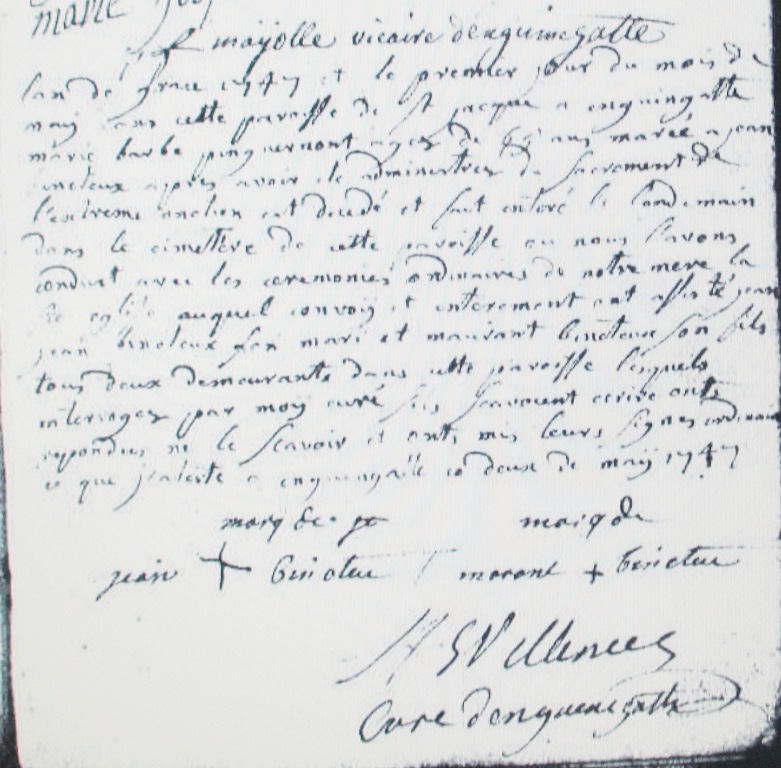 marie
mayolle vicaire denquinegatte
lan de grace 1747 et le premier jour du mois de
may dans cette paroisse de st jacque a enquingatte
marie barbe pinguernont agez de ans marié a jean
bincteux apres avoir ete administrez du sacrement de
l'extreme onction est decedé et fut enteré le landemain
dans le cimettere de cette paroisse ou nous l'avons
conduit avec les ceremonies ordinaires de notre mere la
ste eglise auquel convoy et enterement ont assisté jean
jean bincteux son mari et maurant bincteux son fils
tous deux demeurants dans cette paroisse lesquels
interrogez par moy curé sils scavoient ecrire onts
repondus ne le scavoir et onts mis leurs signes ordinaires
ce que j'ateste a enquingatte ce deux de may 1747
marq de marq de
jean + bincteu morant + bincteu
Cure denquinegatte